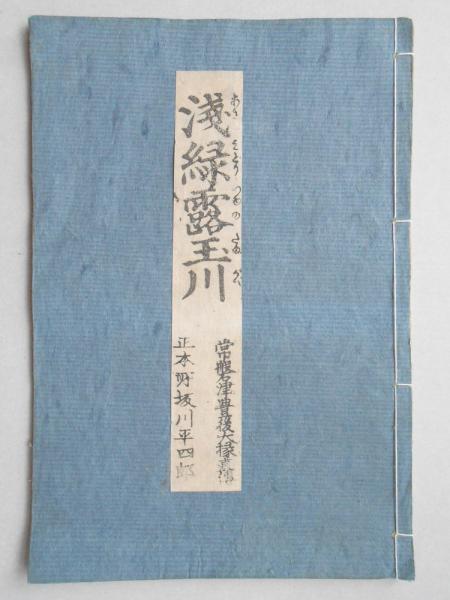 淺緑露玉川
あさみどりつゆのたまがは
常磐津豊後大掾直傳
正本所坂川平四郎